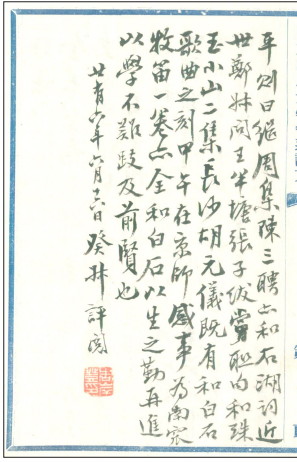 平则曰继周集陳三聘亦和石湖词近
世鄭叔问王半塘張子绂嘗聯句和珠
玉小山二集長沙胡元儀既有和白石
歌曲之刻甲午在京師感事為南宋
牧笛一卷亦全和白石以生之勤再進
以學不難跂及前賢也
廿有六年六月十六日癸叔評阅